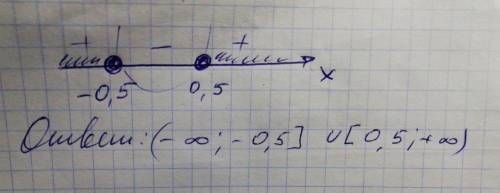 + − +
−0,5 0,5 x
Ответ: (−∞; −0,5] ∪ [0,5; +∞)